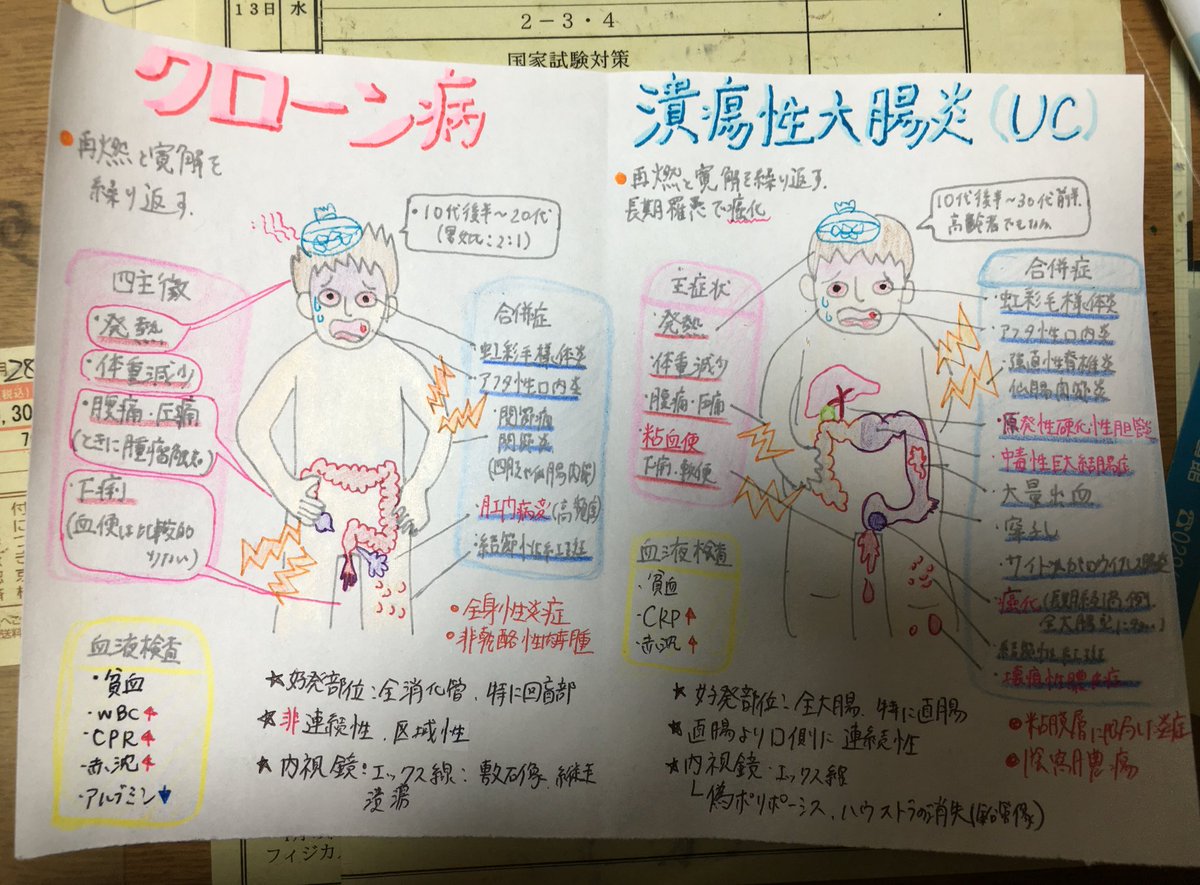 13日 水
2-3・4
国家試験対策
クローン病
・再燃と寛解を
繰り返す.
・10代後半〜20代
(男女比:2:1)
四主徴
・発熱
・体重減少
・腹痛・圧痛
(ときに腫瘤触知)
・下痢
(血便は比較的
少ない)
合併症
・虹彩毛様体炎
・アフタ性口内炎
・関節痛
関節炎
・肛門病変
・結節性紅斑
・全身性炎症
・非乾酪性肉芽腫
血液検査
・貧血
・WBC↑
・CPR↑
・赤沈↑
・アルブミン↓
★好発部位:全消化管、特に回盲部
★非連続性、区域性
★内視鏡・エックス線:敷石像、縦走
潰瘍
潰瘍性大腸炎(UC)
・再燃と寛解を繰り返す.
長期罹患で癌化
10代後半〜30代前半.
高齢者でも
主症状
・発熱
・体重減少
・腹痛・圧痛
・粘血便
・下痢・軟便
合併症
・虹彩毛様体炎
・アフタ性口内炎
・強直性脊椎炎
仙腸関節炎
・原発性硬化性胆管炎
・中毒性巨大結腸症
・大量出血
・穿孔
・サイトメガロウイルス腸炎
・癌化(長期経過例,
・結節性紅斑
・壊疽性膿皮症
・粘膜層に限局した炎症
・陰窩膿瘍
血液検査
・貧血
・CRP↑
・赤沈↑
★好発部位:全大腸、特に直腸
★直腸より口側に連続性
★内視鏡・エックス線
└偽ポリポーシス、ハウストラの消失(鉛管像)
28
30
フィジカ